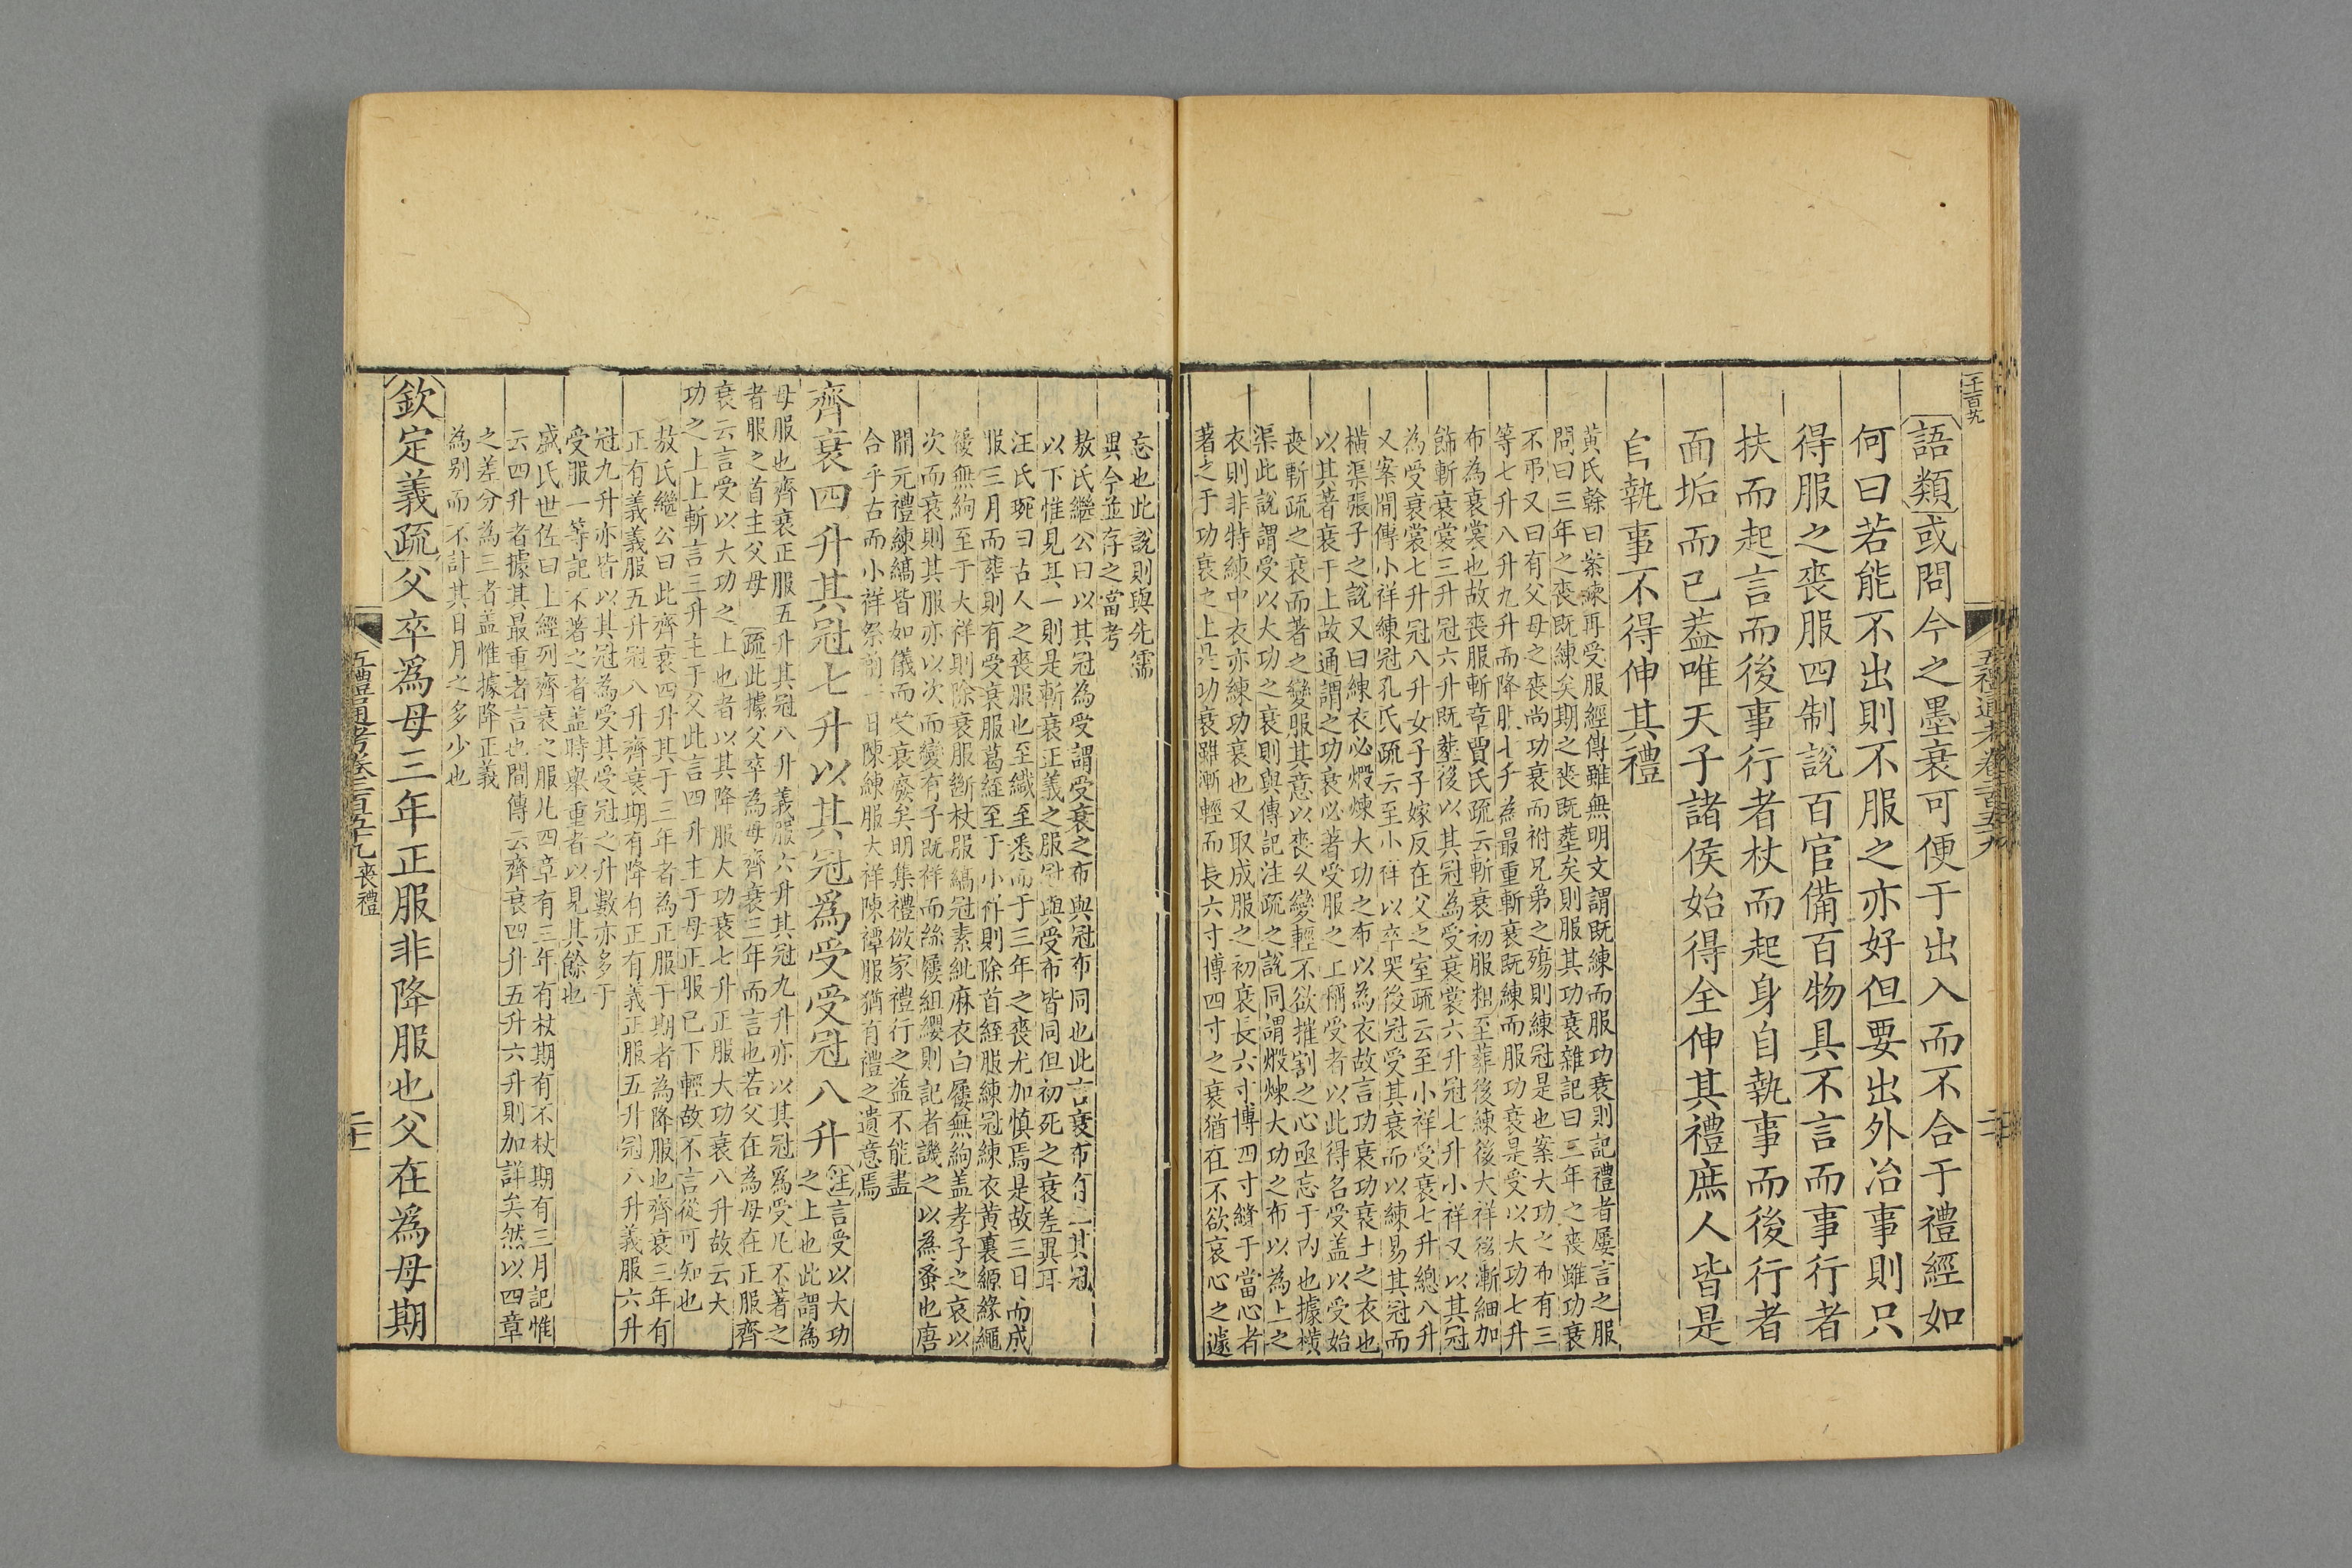 語類或問今之墨衰可便于出入而不合于禮經如
何曰若能不出則不服之亦好但要出外治事則只
得服之喪服四制說百官備百物具不言而事行者
扶而起言而後事行者杖而起身自執事而後行者
面垢而已葢唯天子諸侯始得全伸其禮庶人皆是
自執事不得伸其禮
黃氏榦曰案練再受服經傳雖無明文謂既練而服功衰則記禮者屢言之服
問曰三年之喪既練矣期之喪既葬矣則服其功衰雜記曰三年之喪雖功衰
不弔又曰有父母之喪尚功衰而祔兄弟之殤則練冠是也案大功之布有三
等七升八升九升而降服七升為最重斬衰既練而服功衰是受以大功七升
布為衰裳也故喪服斬章賈氏疏云斬衰初服粗至葬後練後大祥後漸細加
飾斬衰裳三升冠六升既葬後以其冠為受衰裳六升冠七升小祥又以其冠
為受衰裳七升冠八升女子子嫁反在父之室疏云至小祥受衰七升總八升
又案間傳小祥練冠孔氏疏云至小祥以卒哭後冠受其衰而以練易其冠而
橫渠張子之說又曰練衣必煅煉大功之布以為衣故言功衰功衰上之衣也
以其著衰于上故通謂之功衰必著受服之上稱受者以此得名受盖以受始
喪斬疏之衰而著之變服其意以喪久變輕不欲摧割之心亟忘于內也據橫
渠此說謂受以大功之衰則與傳記注疏之說同謂煅煉大功之布以為上之
衣則非特練中衣亦練功衰也又取成服之初衰長六寸博四寸縫于當心者
著之于功衰之上是功衰雖漸輕而長六寸博四寸之衰猶在不欲哀心之遽
忘也此說則與先儒
異今並存之當考
敖氏繼公曰以其冠為受謂受衰之布與冠布同也此言衰布有二其冠
以下惟見其一則是斬衰正義之服冠與受布皆同但初死之衰差異耳
汪氏琬曰古人之喪服也至纎至悉而于三年之喪尤加慎焉是故三日而成
服三月而葬則有受衰服葛絰至于小祥則除首絰服練冠練衣黃裏縓緣繩
屨無絇至于大祥則除衰服斷杖服縞冠素紕麻衣白屨無絇盖孝子之哀以
次而衰則其服亦以次而變有子既祥而絲屨組纓則記者譏之以為蚤也唐
開元禮練縞皆如儀而受衰廢矣明集禮倣家禮行之益不能盡
合乎古而小祥祭前一日陳練服大祥陳禫服猶有禮之遺意焉
齊衰四升其冠七升以其冠爲受受冠八升注言受以大功
之上也此謂為
母服也齊衰正服五升其冠八升義服六升其冠九升亦以其冠爲受凡不著之
者服之首主父母　疏此據父卒為母齊衰三年而言也若父在為母在正服齊
衰云言受以大功之上也者以其降服大功衰七升正服大功衰八升故云大
功之上上斬言三升主于父此言四升主于母正服已下輕故不言從可知也
敖氏繼公曰此齊衰四升其于三年者為正服于期者為降服也齊衰三年有
正有義義服五升冠八升齊衰期有降有正有義正服五升冠八升義服六升
冠九升亦皆以其冠為受其受冠之升數亦多于
受服一等記不著之者盖時舉重者以見其餘也
戚氏世佐曰上經列齊衰之服凡四章有三年有杖期有不杖期有三月記惟
云四升者據其最重者言也間傳云齊衰四升五升六升則加詳矣然以四章
之差分為三者盖惟據降正義
為别而不計其日月之多少也
欽定義疏父卒為母三年正服非降服也父在為母期
五禮通考卷二百五十九喪禮